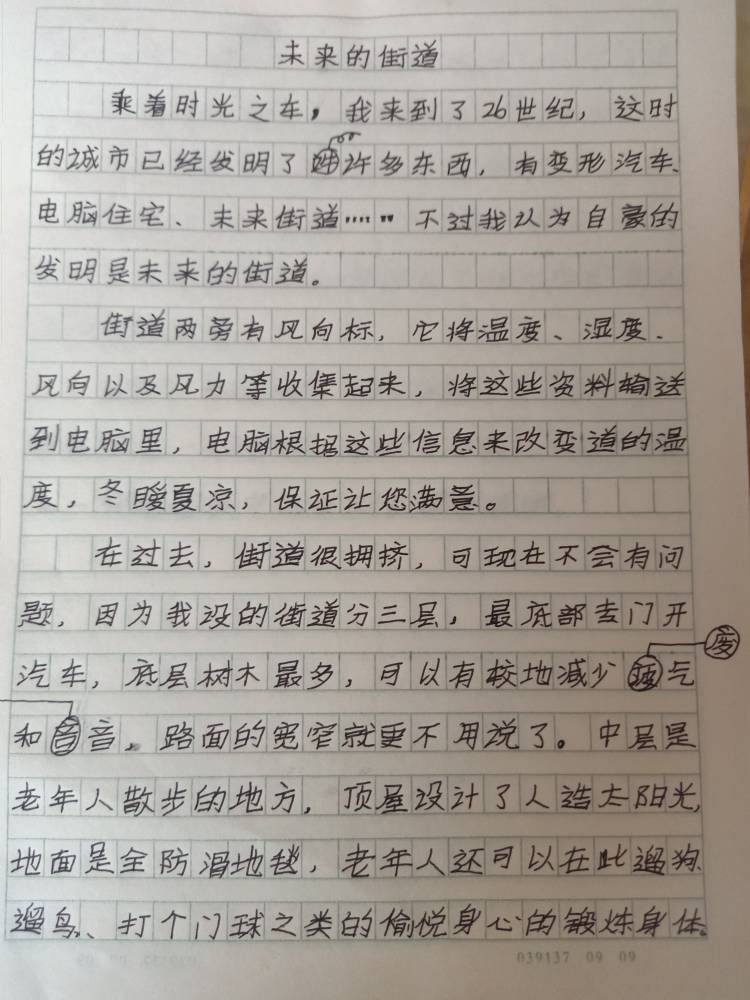 未来的街道
乘着时光之车，我来到了26世纪，这时
的城市已经发明了许多东西，有变形汽车、
电脑住宅、未来街道……不过我认为自豪的
发明是未来的街道。
街道两旁有风向标，它将温度、湿度、
风向以及风力等收集起来，将这些资料输送
到电脑里，电脑根据这些信息来改变道的温
度，冬暖夏凉，保证让您满意。
在过去，街道很拥挤，可现在不会有问
题，因为我设的街道分三层，最底部专门开
废
汽车，底层树木最多，可以有校地减少气
和音，路面的宽窄就更不用说了。中层是
老年人散步的地方，顶层设计了人造太阳光，
地面是全防滑地毯，老年人还可以在此遛狗、
遛鸟、打个门球之类的愉悦身心的锻炼身体。
039137 09 09